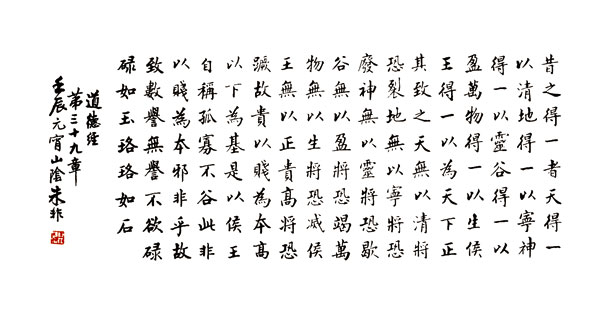 昔之得一者天得一
以清地得一以寧神
得一以靈谷得一以
盈萬物得一以生侯
王得一以為天下正
其致之天無以清將
恐裂地無以寧將恐
廢神無以靈將恐歇
谷無以盈將恐竭萬
物無以生將恐滅侯
王無以正貴高將恐
蹶故貴以賤為本高
以下為基是以侯王
自稱孤寡不谷此非
以賤為本邪非乎故
致數譽無譽不欲碌
碌如玉珞珞如石
道德經
第三十九章
壬辰元宵山陰朱非